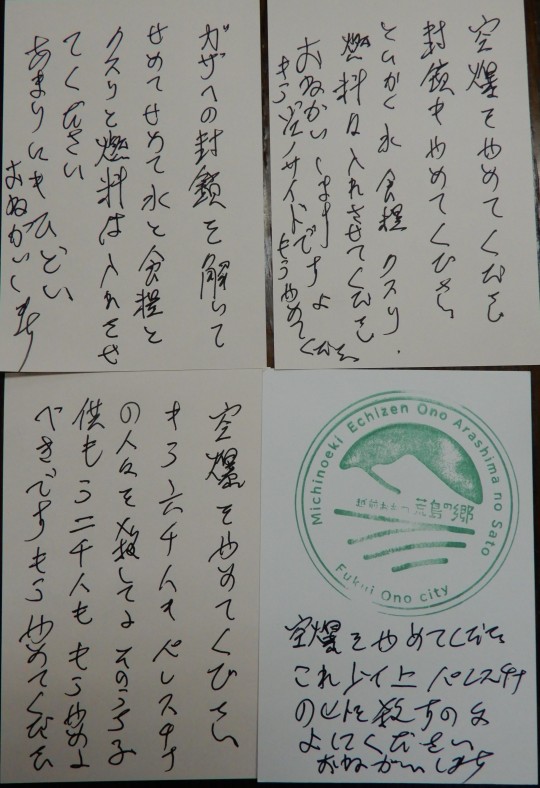 空爆をやめてください
封鎖もやめてください
とにかく水 食糧 クスリ.
燃料は入れさせてください
おねがいします
もうジェノサイドですよ
もうやめてください
ガザへの封鎖を解いて
せめてせめて水と食糧と
クスリと燃料は入れさせ
てください
あまりにもひどい
おねがいします
空爆をやめてください
もう六千人もパレスチナ
の人々を殺してよ そのうち子
供も二千人も もうやめよ
べきですもうやめてください
Michinoeki Echizen Ono Arashima no Sato
越前おおの 荒島の郷
Fukui Ono city
空爆をやめてください
これ以上 パレスチナ
の人を殺すのは
よしてください
おねがいします